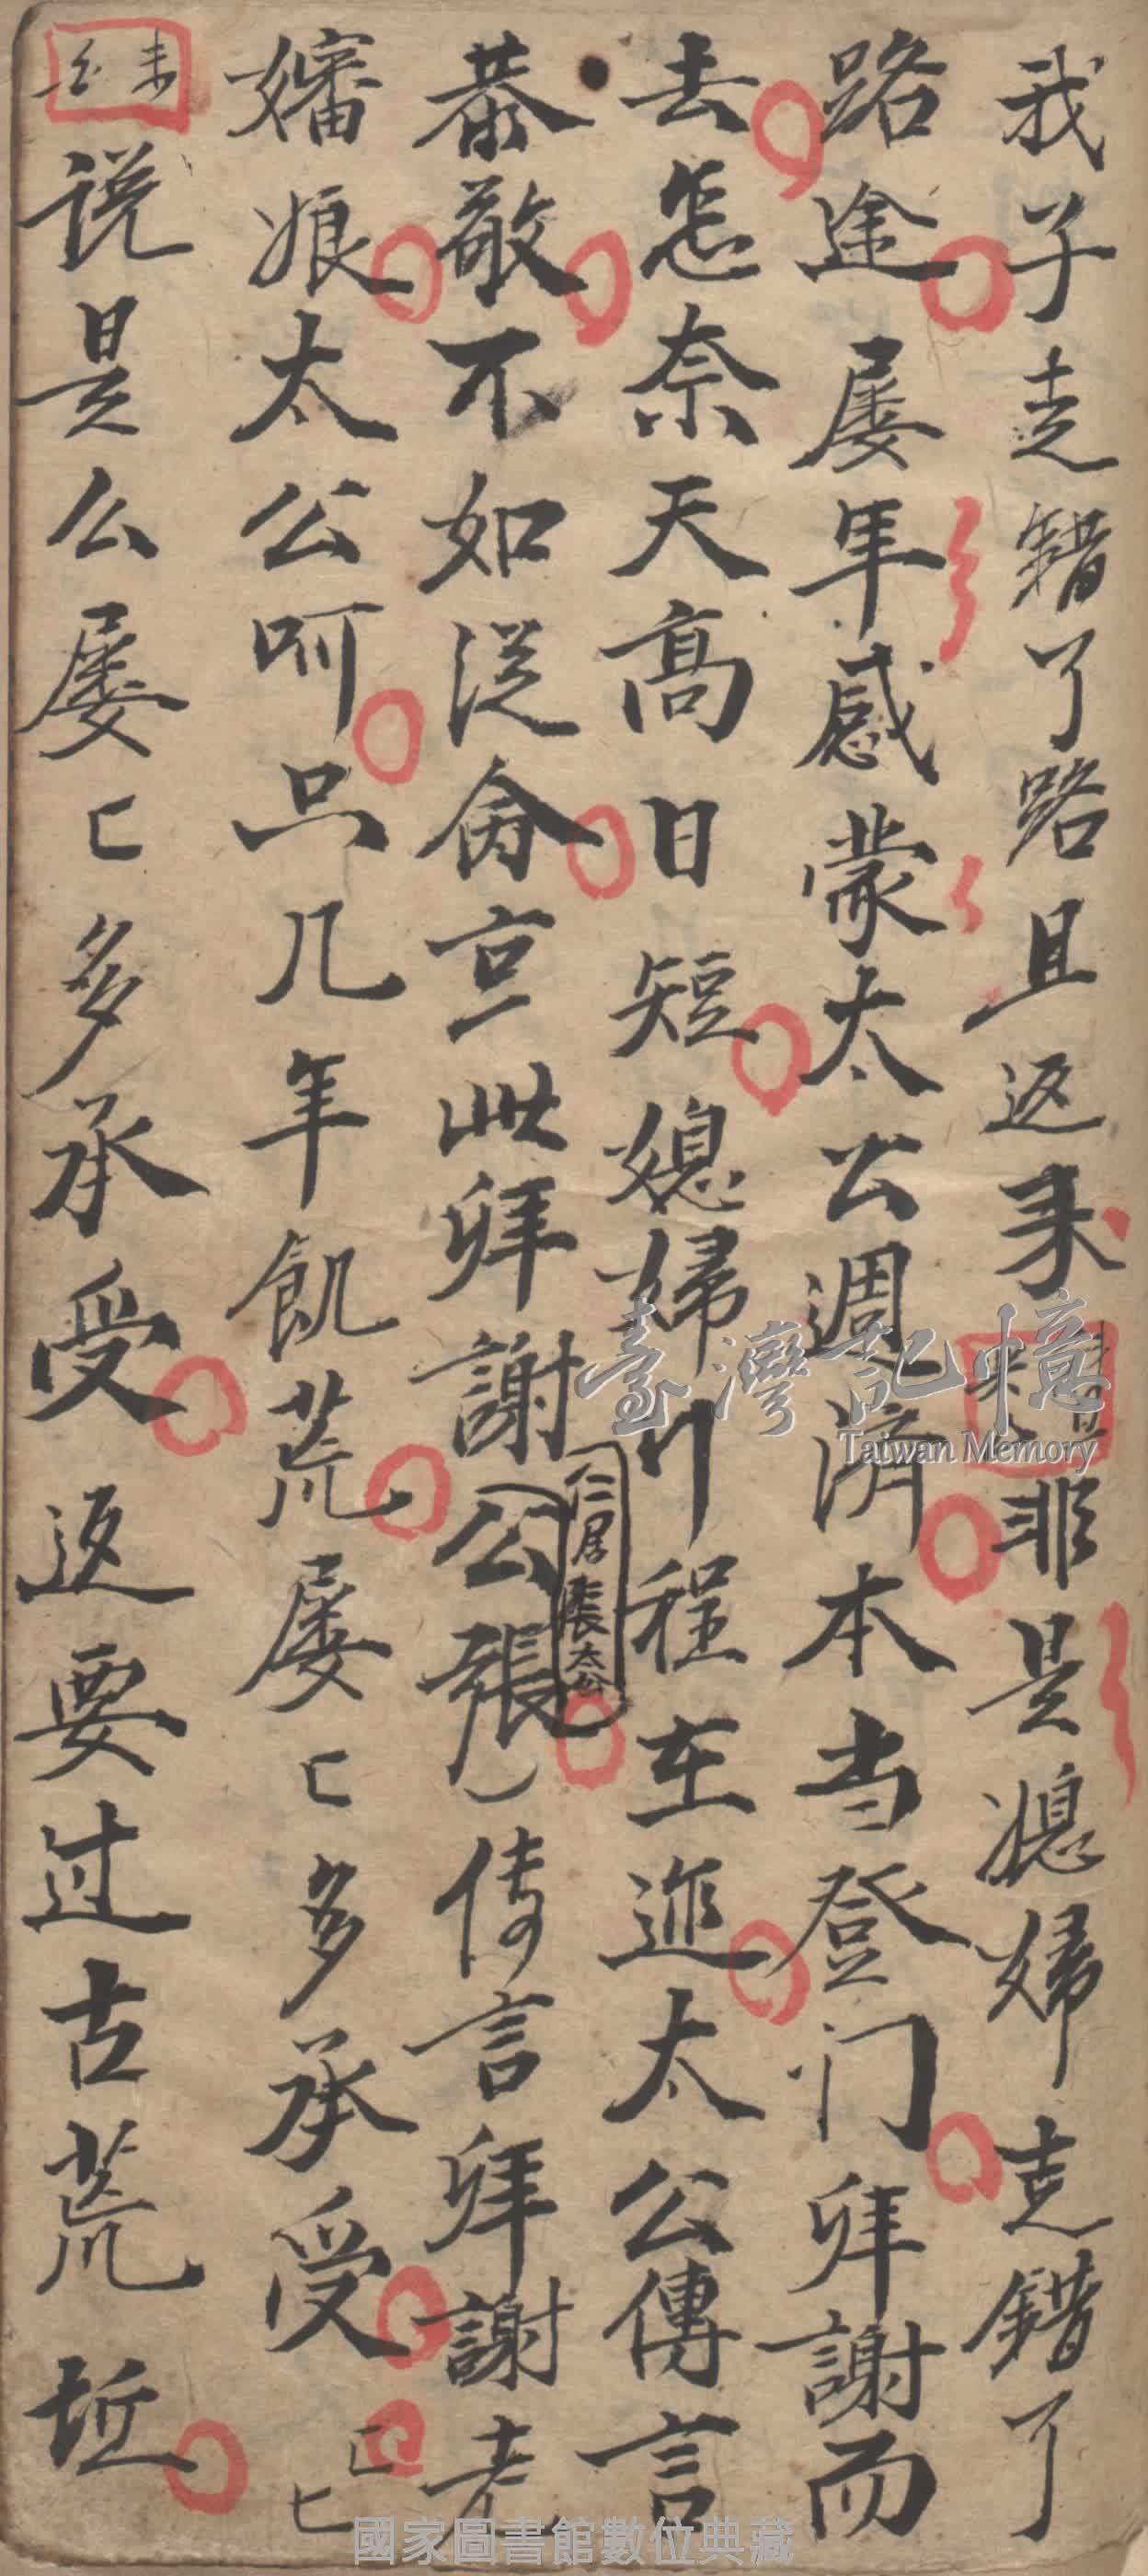 我子走錯了路且返来 非是媳婦走錯了
路途屡年感蒙太公週濟本当登门拜謝而
去怎奈天高日短媳婦行程在迩太公傳言
恭敬不如從命京此拜謝公張传言拜謝老
仁居張太公
嬸娘太公呵只几年飢荒屡匕多承受
说是么屡匕多承受返要过古荒坵
臺灣記憶
Taiwan Memory
國家圖書館數位典藏